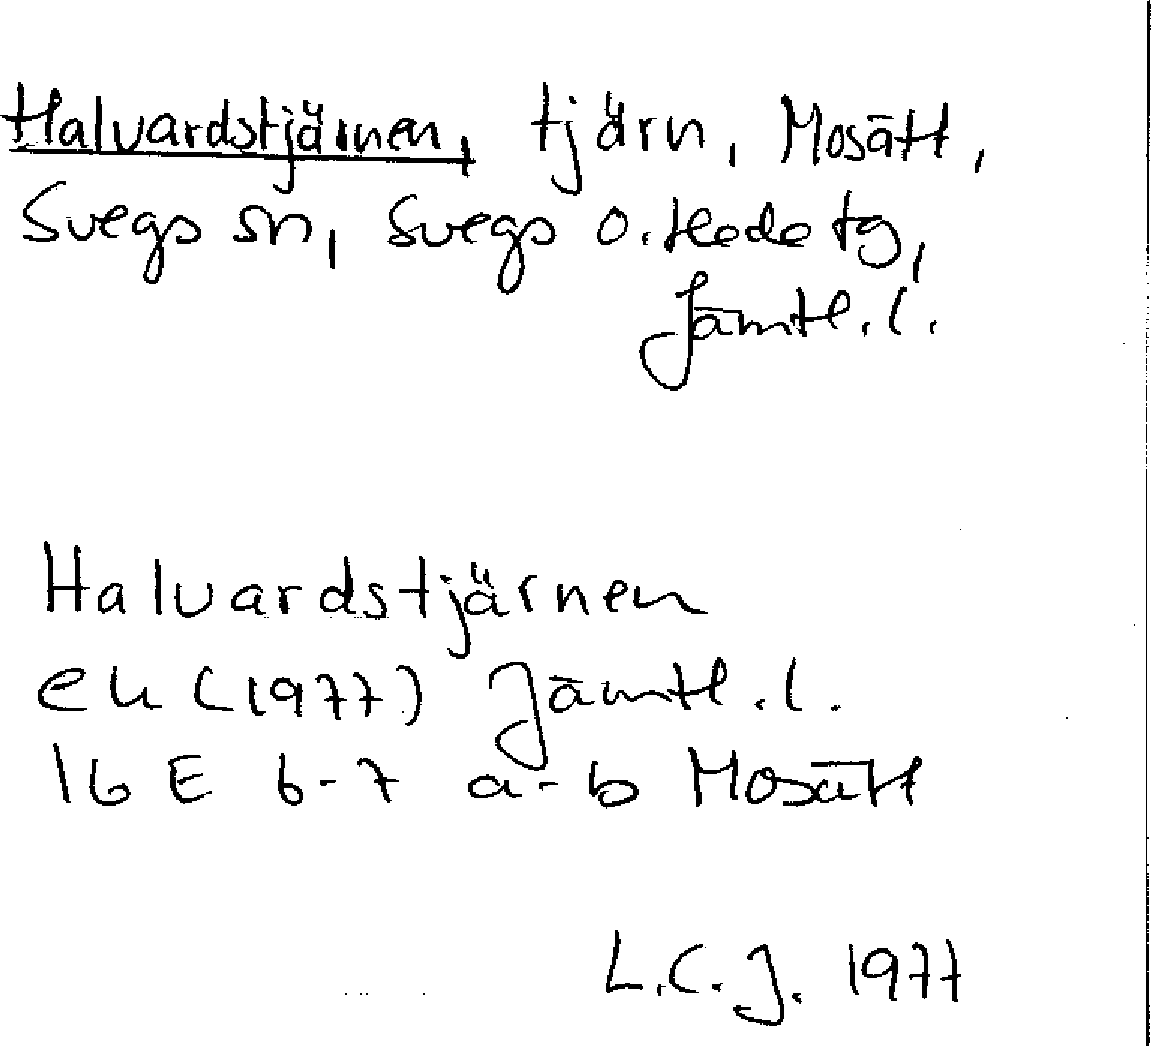 Halvardstjärnen, tjärn, Mosätt,
Svegs sn, Svegs o. Hede tg,
Jämtl. l.
Halvardstjärnen
ek (1977) Jämtl. l.
16 E 6-7 a-b Mosätt
L.C.J. 1977